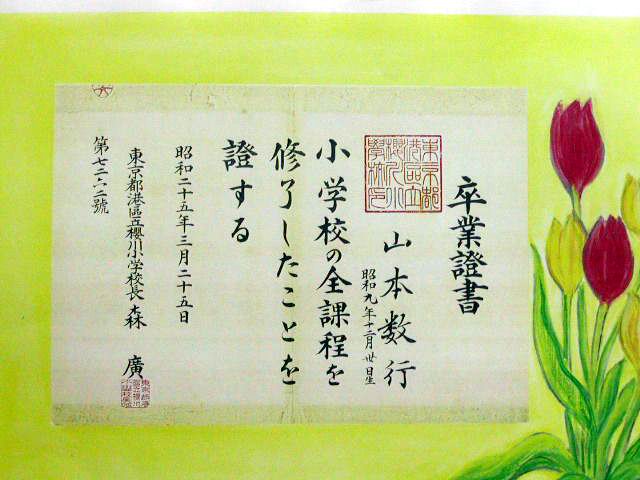 卒業證書
山本数行
昭和九年十二月廿日生
小学校の全課程を
修了したことを
證する
昭和二十五年三月二十五日
東京都港區立櫻川小学校長 森 廣
第七二六二號
東京都
港區立
櫻川小
學校印